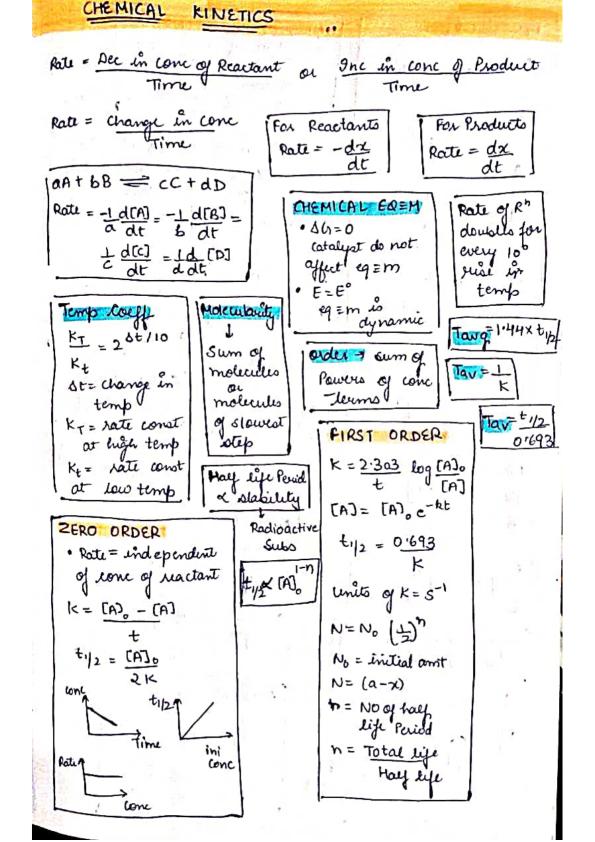 CHEMICAL KINETICS
Rate = Dec in conc of Reactant / Time or Inc in conc of Product / Time
Rate = Change in conc / Time
For Reactants
Rate = -dx/dt
For Products
Rate = dx/dt
aA + bB ⇌ cC + dD
Rate = -1/a d[A]/dt = -1/b d[B]/dt =
1/c d[C]/dt = 1/d d/dt [D]
CHEMICAL EQ≡M
• ΔG=0
Catalyst do not
affect eq≡m
• E=E°
eq≡m is
dynamic
Rate of Rⁿ
doubles for
every 10°
rise in
temp
Temp Coeff
K_T / K_t = 2^Δt/10
Δt = change in
temp
K_T = rate const
at high temp
K_t = rate const
at low temp
Molecularity
↓
Sum of
molecules
or
molecules
of slowest
step
Order → sum of
Powers of conc
terms
Tavg = 1.44 × t1/2
Tav = 1/K
Tav = t1/2 / 0.693
Half life Period
∝ stability
↓
Radioactive
Subs
t1/2 ∝ [A]₀^1-n
ZERO ORDER
• Rate = independent
of conc of reactant
K = [A]₀ - [A] / t
t1/2 = [A]₀ / 2K
conc
Time
t1/2
ini
conc
Rate
conc
FIRST ORDER
K = 2.303/t log [A]₀/[A]
[A] = [A]₀ e^-kt
t1/2 = 0.693/K
Units of K = s⁻¹
N = N₀ (1/2)ⁿ
N₀ = initial amt
N = (a-x)
n = NO of half
life Period
n = Total life / Half life